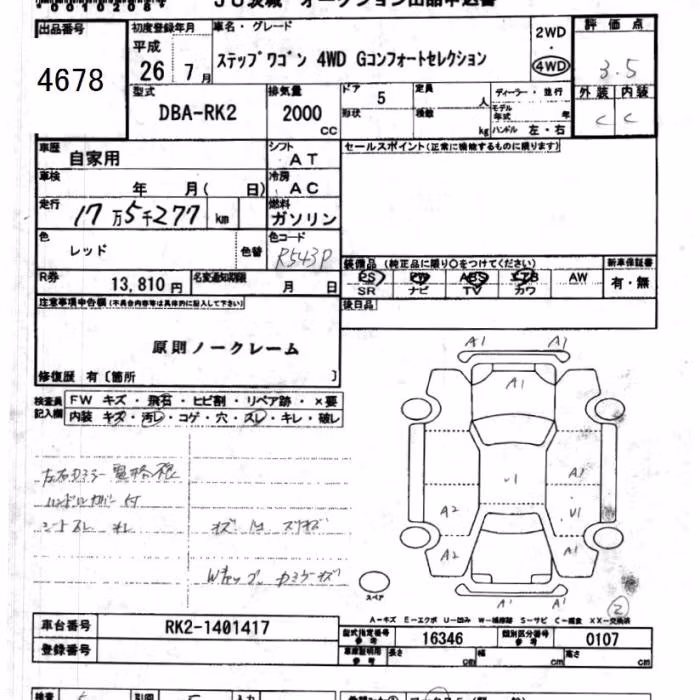 00102084 JU茨城 オークション出品申込書
出品番号 4678
初度登録年月 平成 26 7月
車名・グレード ステップワゴン 4WD Gコンフォートセレクション
2WD 4WD
評価点 3.5
外装 内装 C C
型式 DBA-RK2
排気量 2000 CC
ドア 5 形状
定員 人 積載 kg
ディーラー・並行 モデル年式 年
ハンドル 左・右
車歴 自家用
シフト AT
車検 年 月( 日)
冷房 AC
走行 17万5千277 km
燃料 ガソリン
色 レッド 色替
色コード R543P
R券 13,810 円
名変通知期限 月 日
セールスポイント(正常に機能するものに限ります)
装備品 (純正品に限り○をつけてください)
PS PW ABS エアB AW
SR ナビ TV カワ
新車保証書 有・無
後日品
注意事項申告欄(不具合内容等は具体的に記入して下さい)
原則ノークレーム
修復歴 有〔箇所 〕
検査員記入欄
FW キズ・飛石・ヒビ割・リペア跡・×要
内装 キズ・汚レ・コゲ・穴・スレ・キレ・破レ
A1 A1
A1
U1
A1
A2 U1
A2 A1
A1 A1
スペア
2
A-キズ E-エクボ U-凹み W-補修跡 S-サビ C-腐食 XX-交換済
車台番号 RK2-1401417
登録番号
型式指定番号 参考 16346
類別区分番号 参考 0107
車庫証明用 参考 長さ cm 幅 cm 高さ cm